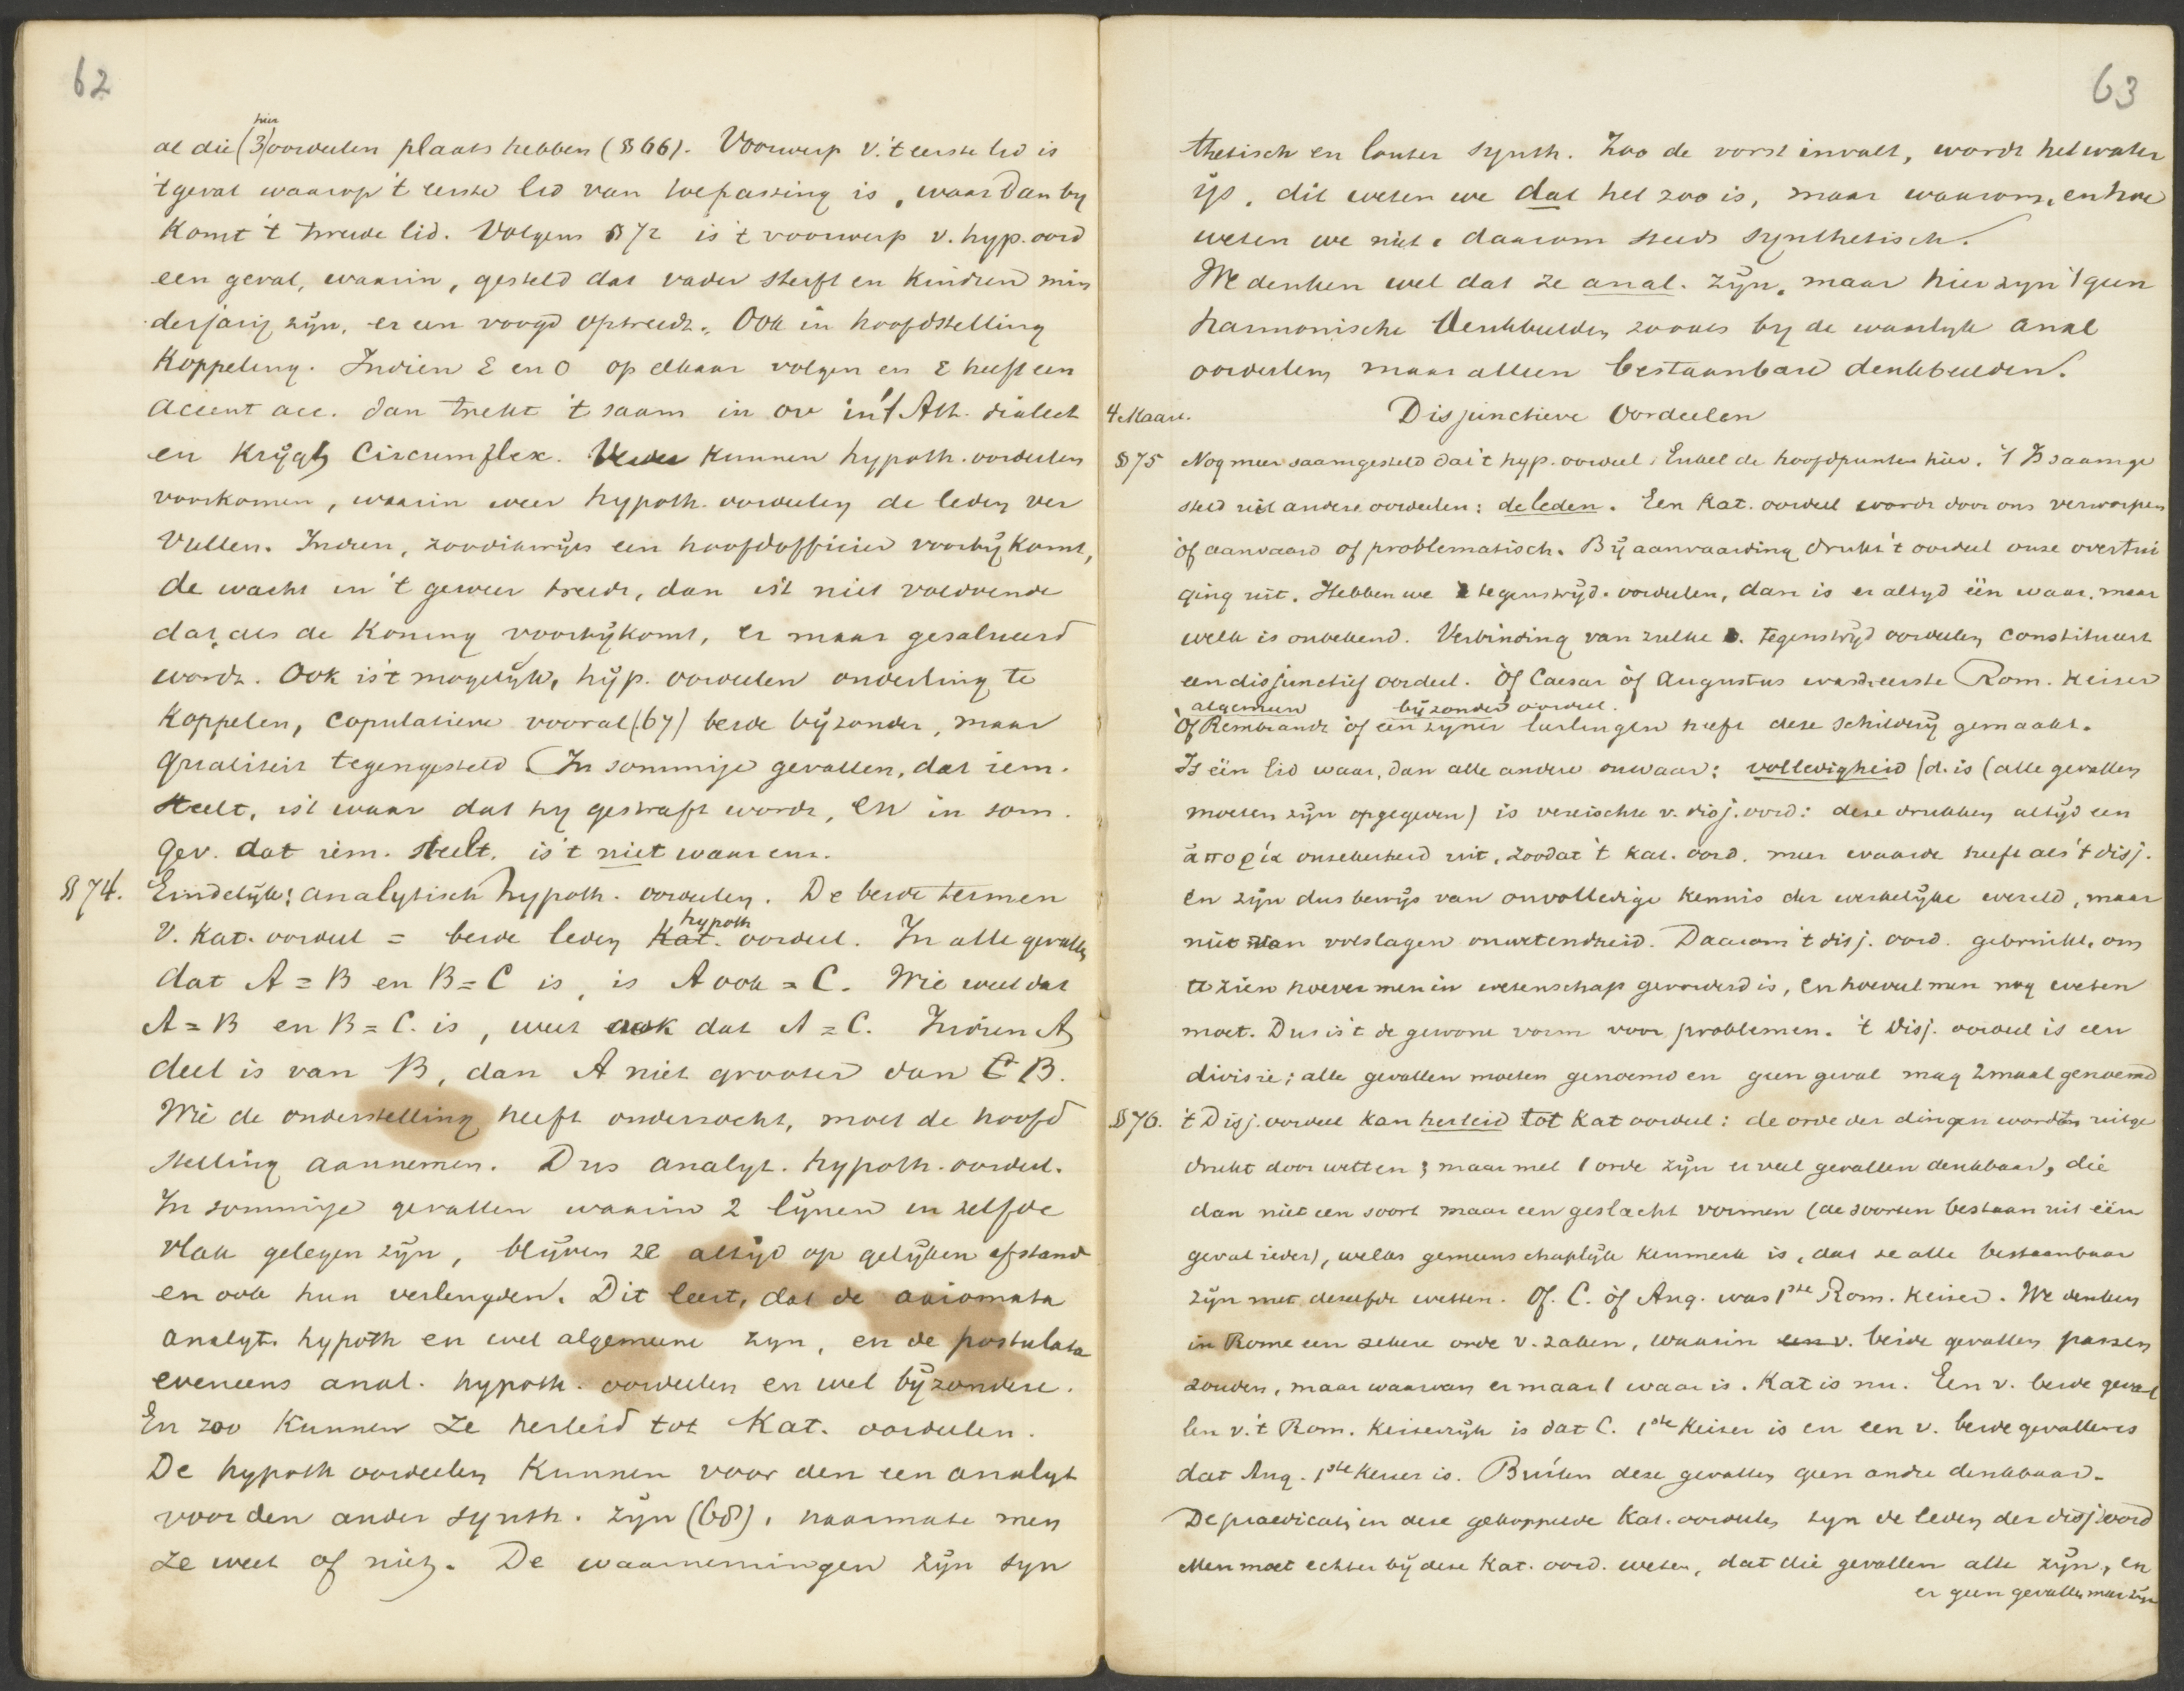 62
hier
al die (3) oordeelen plaats hebben (§ 66). Voorwerp v. 't eerste lid is
't geval waarop 't eerste lid van toepassing is, waar dan by
komt 't tweede lid. Volgens § 72 is 't voorwerp v. hyp. oord
een geval, waarin, gesteld dat vader sterft en kindren min
derjarig zyn, er een voogd optreedt. Ook in hoofdstelling
koppeling. Indien ε en ο op elkaar volgen en ε heeft een
accent acc. dan trekt 't saam in ου in 't Att. dialect
en krygt circumflex. Verder kunnen hypoth. oordeelen
voorkomen, waarin weer hypoth. oordeelen de leden ver
vullen. Indien, zoodikwyls een hoofdofficier voorby komt,
de wacht in 't geweer treedt, dan is 't niet voldoende
dat, als de Koning voorbykomt, er maar gesalueerd
wordt. Ook is 't mogelyk, hyp. oordeelen onderling te
koppelen, copulatieve vooral (67) beide byzonder, maar
qualiteit tegengesteld. In sommige gevallen, dat iem.
steelt, is 't waar dat hy gestraft wordt, en in som.
gev. dat iem. steelt, is 't niet waar enz.
§ 74. Eindelyk: analytisch hypoth. oordeelen. De beide termen
hypoth
v. kat. oordeel = beide leden kat. oordeel. In alle gevallen
dat A = B en B = C is, is A ook = C. Wie weet dat
A = B en B = C. is, weet ook dat A = C. Indien A
deel is van B, dan A niet grooter dan C B.
Wie de onderstelling heeft onderzocht, moet de hoofd
stelling aannemen. Dus analyt. hypoth. oordeel.
In sommige gevallen waarin 2 lynen in zelfde
vlak gelegen zyn, blyven ze altyd op gelyken afstand
en ook hun verlengden. Dit leert, dat de axiomata
analyt. hypoth en wel algemeene zyn, en de postulata
eveneens anal. hypoth. oordeelen en wel byzondere.
En zoo kunnen ze herleid tot Kat. oordeelen.
De hypoth oordeelen kunnen voor den een analyt
voor den ander synth. zyn (68), naarmate men
ze weet of niet. De waarnemingen zyn syn
63
thetisch en louter synth. Zoo de vorst invalt, wordt het water
ys, dit weten we dat het zoo is, maar waarom, en hoe
weten we niet, daarom steeds synthetisch.
We denken wel dat ze anal. zyn, maar hier zyn 't geen
harmonische denkbeelden zooals by de waarlyk anal
oordeelen maar alleen bestaanbare denkbeelden.
4 Maart. Disjunctieve Oordeelen
§ 75 Nog meer saamgesteld dan 't hyp. oordeel. Enkel de hoofdpunten hier. 't Is saamge
steld uit andere oordeelen: de leden. Een Kat. oordeel wordt door ons verworpen
òf aanvaard of problematisch. By aanvaarding drukt 't oordeel onze overtui
ging uit. Hebben we 2 tegenstryd. oordeelen, dan is er altyd één waar, maar
welk is onbekend. Verbinding van zulke tegenstryd oordeelen constitueert
een disjunctief oordeel. Òf Caesar òf Augustus was d. eerste Rom. Keizer
algemeen byzonder oordeel.
Òf Rembrandt òf een zyner leerlingen heeft deze schildery gemaakt.
Is één lid waar, dan alle andere onwaar: volledigheid (d. is (alle gevallen
moeten zyn opgegeven) is vereischte v. disj. oord: deze drukken altyd een
ἀπορία onzekerheid uit, zoodat 't kat. oord. meer waarde heeft als 't disj.
en zyn dus bewys van onvolledige kennis der werkelyke wereld, maar
niet van volslagen onwetendheid. Daarom 't disj. oord. gebruikt, om
te zien hoever men in wetenschap gevorderd is, en hoeveel men nog weten
moet. Dus is 't de gewone vorm voor problemen. 't Disj. oordeel is een
divisie; alle gevallen moeten genoemd en geen geval mag 2maal genoemd
§ 76. 't Disj. oordeel kan herleid tot Kat oordeel: de orde der dingen worden uitge
drukt door wetten; maar met 1 orde zyn er veel gevallen denkbaar, die
dan niet een soort maar een geslacht vormen (de soorten bestaan uit één
geval ieder), welks gemeenschaplyk kenmerk is, dat ze alle bestaanbaar
zyn met dezelfde wetten. Òf C. òf Aug. was 1ste Rom. Keizer. We denken
in Rome een zekere orde v. zaken, waarin een v. beide gevallen passen
zouden, maar waarvan er maar 1 waar is. Kat is nu. Een v. beide geval
len v. 't Rom. Keizerryk is dat C. 1ste Keizer is en een v. beide gevallen is
dat Aug. 1ste Keizer is. Buiten deze gevallen geen andre denkbaar.
De praedicaten in deze gekoppelde Kat. oordeelen zyn de leden der disj oord
Men moet echter by deze Kat. oord. weten, dat die gevallen alle zyn, en
er geen gevallen meer zyn